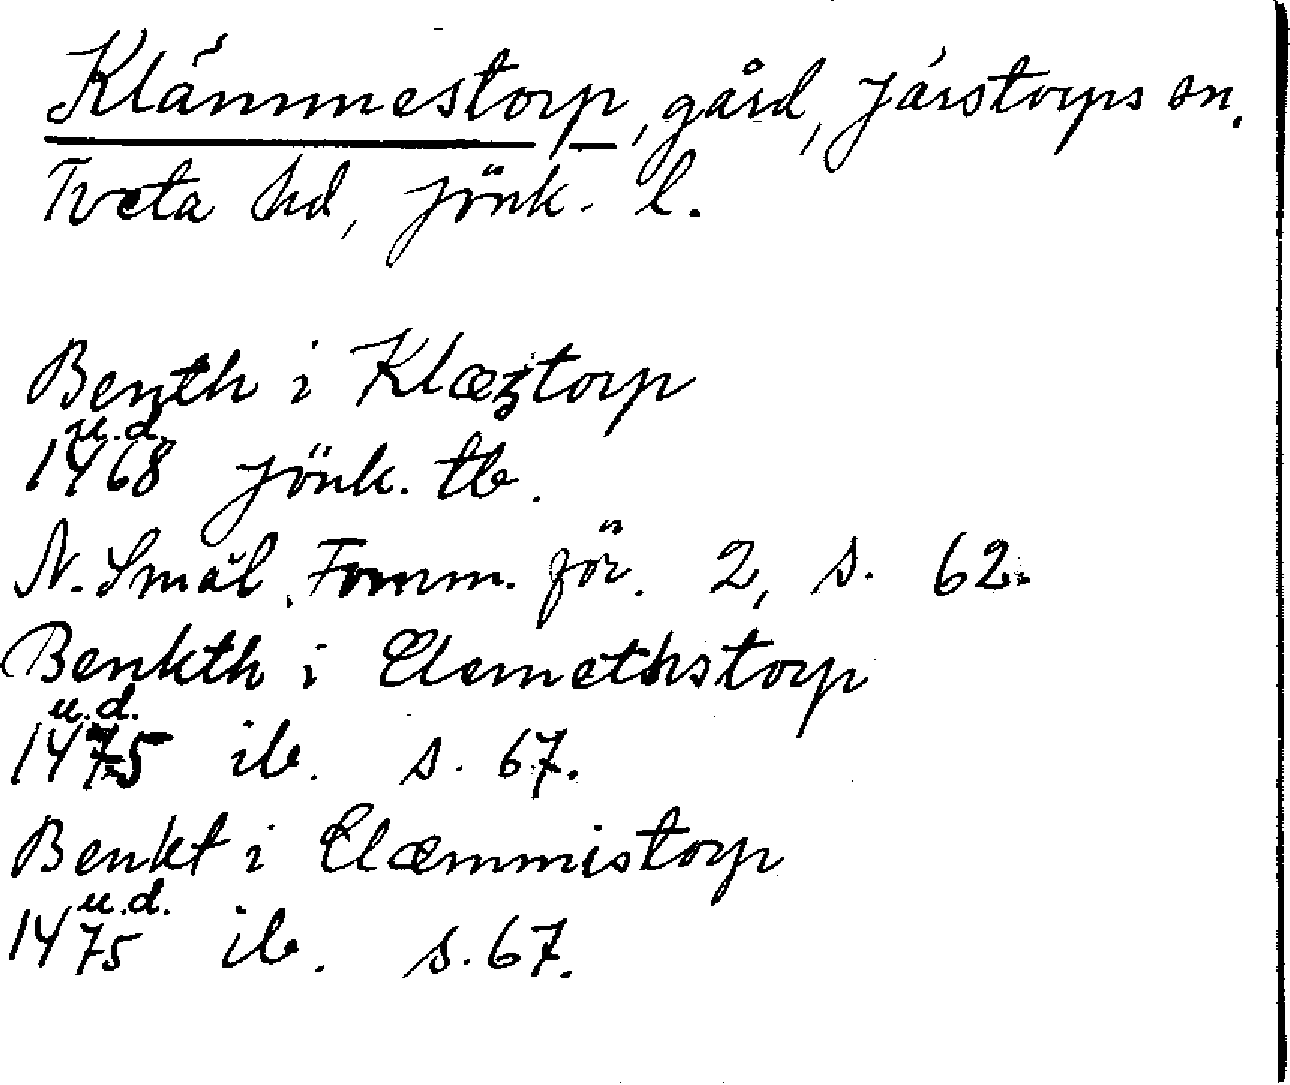 Klämmestorp, gård, Järstorps sn.
Tveta hd, Jönk. l.
Benth i Klæztorp
u.d.
1468 Jönk. tb.
N. Smål. Fornm. för. 2, s. 62.
Benkth i Clemethstorp
u.d.
1475 ib. s. 67.
Benkt i Clæmmistorp
u.d.
1475 ib. s. 67.